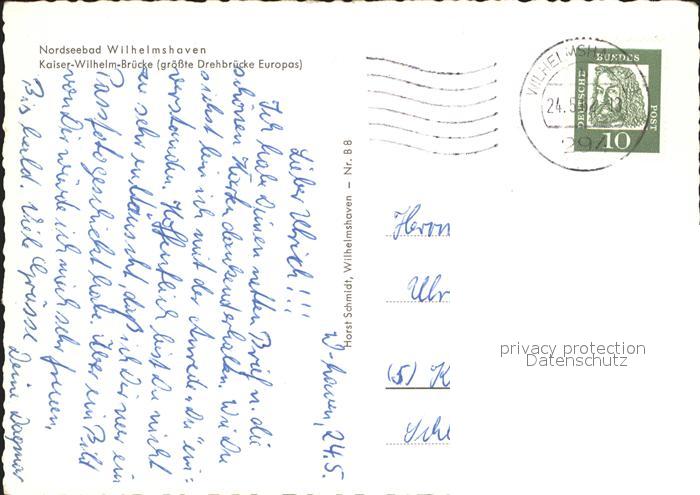 Nordseebad Wilhelmshaven
Kaiser-Wilhelm-Brücke (größte Drehbrücke Europas)
W-haven, 24.5.
Lieber Ulrich!!!
Ich habe Deinen netten Brief u. die
schönen Karten dankend erhalten. Wie Du
siehst bin ich mit der Anrede „Du" ein-
verstanden. Hoffentlich bist Du nicht
zu sehr enttäuscht, daß ich Dir nur ein
Passfoto geschickt habe. Über ein Bild
von Dir würde ich mich sehr freuen.
Bis bald. Viele Grüsse Deine Dagmar
Horst Schmidt, Wilhelmshaven — Nr. B 8
WILHELMSHA
24.5.
294
DEUTSCHE BUNDESPOST
10
Herrn
Ulr
(5) K
Schl
privacy protection
Datenschutz